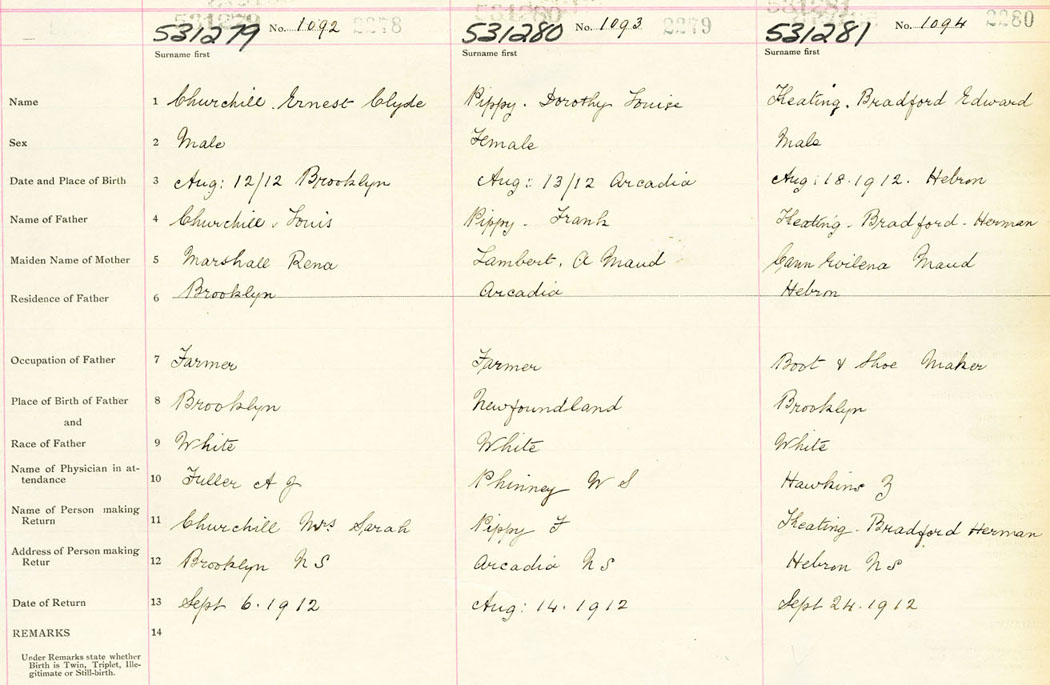 531279 No. 1092 2278 531280 No. 1093 2279 531281 No. 1094 2280
Surname first Surname first Surname first
Name 1 Churchill. Ernest Clyde Pippy. Dorothy Louise Keating. Bradford Edward
Sex 2 Male Female Male
Date and Place of Birth 3 Aug: 12/12 Brooklyn Aug: 13/12 Arcadia Aug: 18.1912. Hebron
Name of Father 4 Churchill, Louis Pippy. Frank Keating. Bradford. Herman
Maiden Name of Mother 5 Marshall Rena Lambert, A Maud Cann Evilena Maud
Residence of Father 6 Brooklyn Arcadia Hebron
Occupation of Father 7 Farmer Farmer Boot & Shoe Maker
Place of Birth of Father 8 Brooklyn Newfoundland Brooklyn
and
Race of Father 9 White White White
Name of Physician in at-
tendance 10 Fuller A J Phinney W S Hawkins Z
Name of Person making
Return 11 Churchill Mrs Sarah Pippy F Keating. Bradford Herman
Address of Person making
Retur 12 Brooklyn N S Arcadia N S Hebron N S
Date of Return 13 Sept 6.1912 Aug: 14.1912 Sept 24.1912
REMARKS 14
Under Remarks state whether
Birth is Twin, Triplet, Ille-
gitimate or Still-birth.